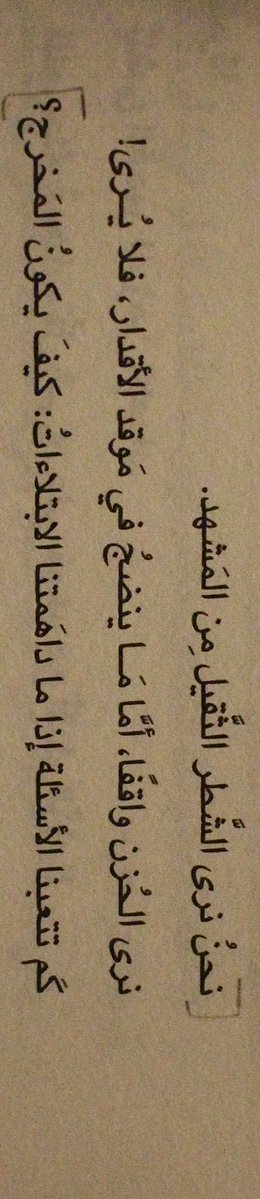 [نحنُ نرى الشَّطر الثَّقيل مِن المَشهد.
نرى الحُزن واقفًا، أمَّا مَا ينضجُ في مَوقد الأقدار، فلا يُرى!
كَم تتعبنا الأسئلة إذا ما داهَمتنا الابتلاءاتُ: كيفَ يكونُ المَخرج؟]